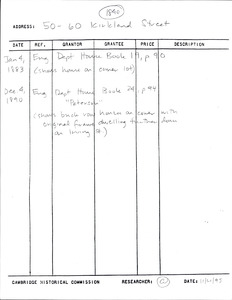 1890
ADDRESS: 50-60 Kirkland Street
DATE REF. GRANTOR GRANTEE PRICE DESCRIPTION
Jan 4, Eng Dept House Book 19, p 90
1883 (shows house on corner lot)
Dec 4, Eng Dept House Book 24, p 94
1890 "Peterson"
(shows brick row houses on corner with
original frame dwelling further down
on Irving St.)
CAMBRIDGE HISTORICAL COMMISSION RESEARCHER: DATE: